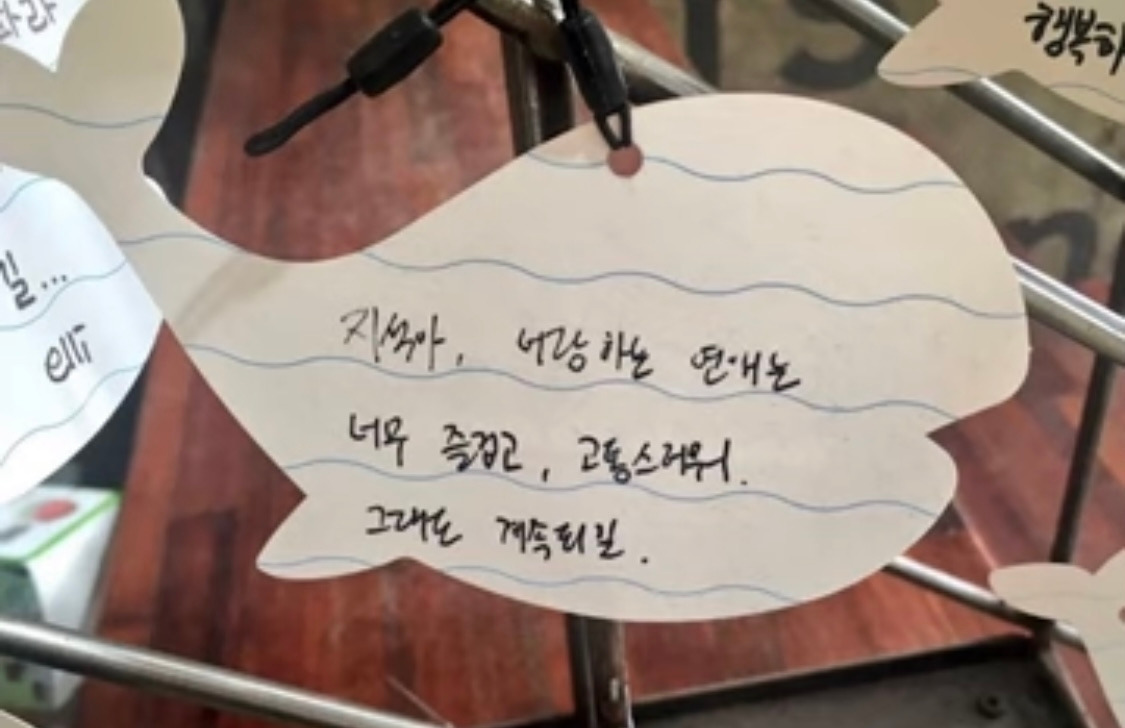 지석아, 너랑 하는 연애는
너무 즐겁고, 고통스러워.
그래도 계속되길.
행복하
길...